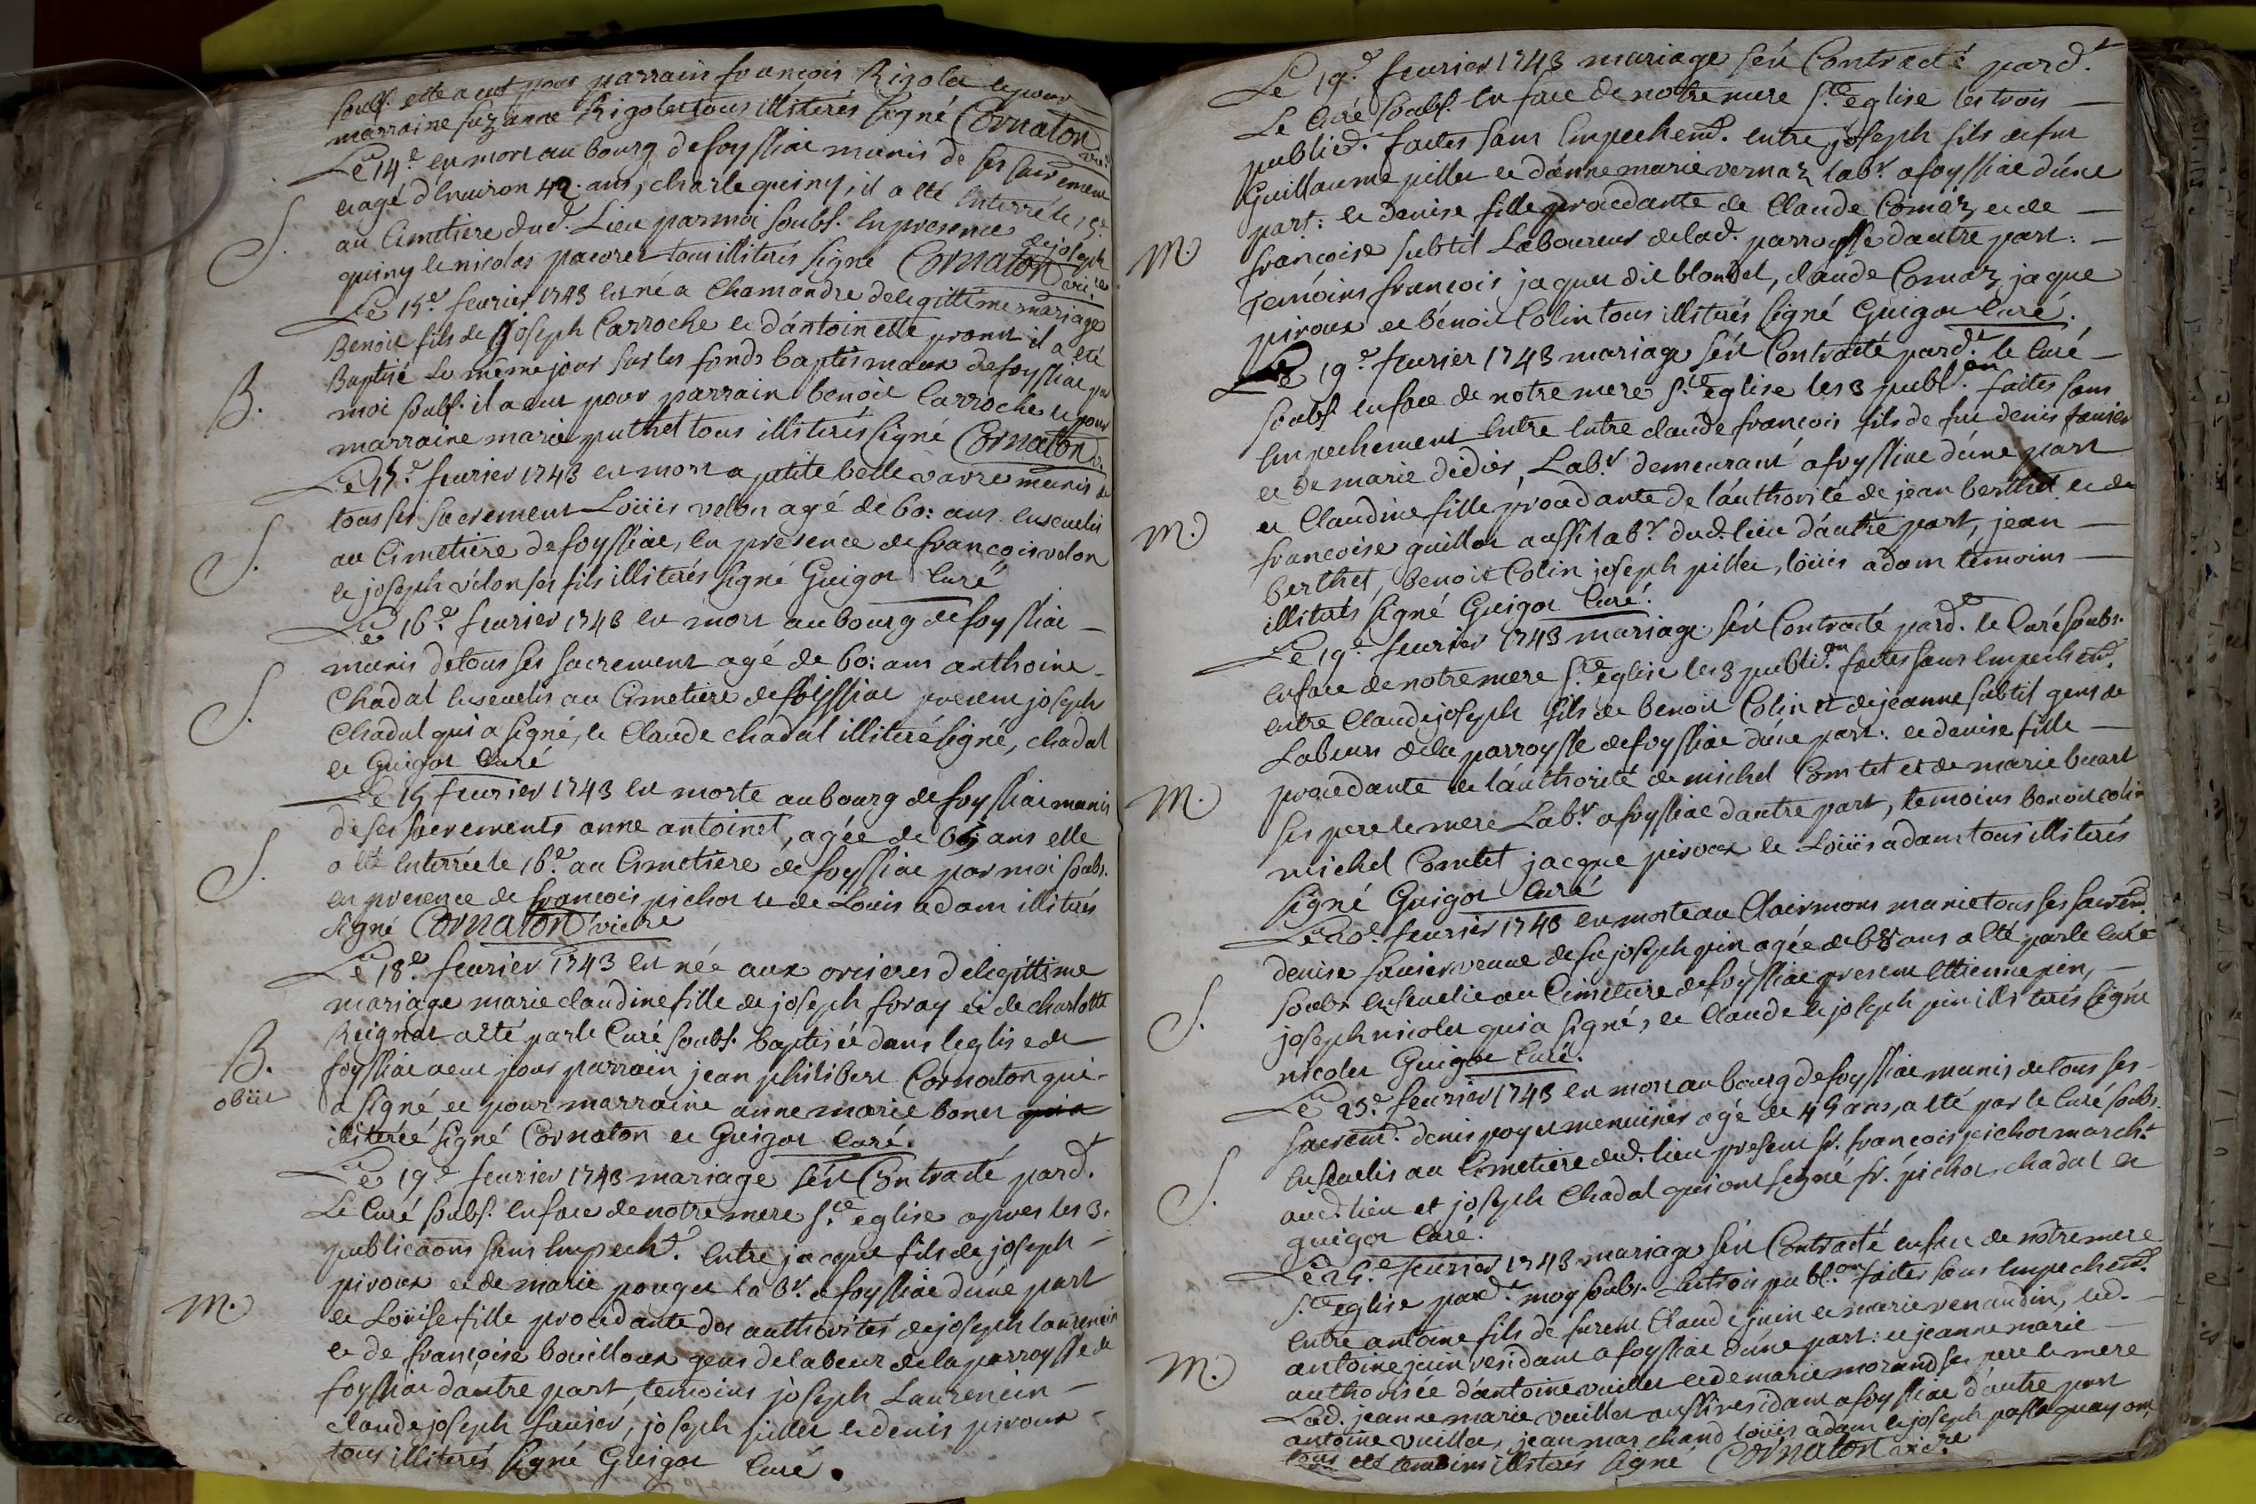 soubs. elle a eut pour parrain françois Rigolet et pour
marraine suzanne Rigolet tous illiterés signé Cornaton vic.
Le 14e est mort au bourg de foyssiac munis de ses sacrement
et agé d'environ 42. ans, charle quiny, il a eté enterré le 15e
S. au Cimetiere dud. Lieu par moi soubs. en presence de joseph
quiny et nicolas pacoret tous illiterés signé Cornaton vicre
Le 15e feurier 1743 est né a Chamandre de legittime mariage
Benoit fils de joseph Carroche et d'antoinette prom il a eté
Baptisé le même jour sur les fonds baptismaux de foyssiac par
B. moi soubs. il a eut pour parrain benoit Carroche et pour
marraine marie puthet tous illiterés signé Cornaton v.
Le 15e feurier 1743 est mort a petite belle vavre munis de
tous ses sacrement Loüis velon agé de 60: ans enseuelis
S. au Cimetiere de foyssiac, en presence de françois velon
et joseph velon ses fils illiterés signé Guigot Curé
Le 16e feurier 1743 est mort au bourg de foyssiac
munis de tous ses sacrement agé de 60: ans anthoine
S. Chadal enseuelis au Cimetiere de foissiac present joseph
Chadal qui a signé, et Claude chadal illiteré signé, chadal
et Guigot Curé
Le 15 feurier 1743 est morte au bourg de foyssiac munis
de ses sacrements anne antoinet, agée de ans elle
S. a eté enterrée le 16e au Cimetiere de foyssiac par moi soubs.
en presence de françois pichot et de Louis adam illiterés
signé Cornaton vicre
Le 18e feurier 1743 est née aux orcieres de legittime
mariage marie claudine fille de joseph foray et de charlotte
B. Reignat a eté par le Curé soubs. baptisée dans l'eglise de
obiit foyssiac a eut pour parrain jean philibert Cornaton qui
a signé et pour marraine anne marie bonet qui a
illiterée signé Cornaton et Guigot Curé.
Le 19e feurier 1743 mariage s'est Contracté pardt
Le Curé soubs. en face de notre mere ste eglise apres les 3.
publicaons sans empecht. entre jacque fils de joseph
M. piroux et de marie pouget labr. a foyssiac d'une part
et Loüise fille procedante des authorités de joseph laurencin
et de françoise bouilloux gens de labeur de la parroysse de
foyssiac d'autre part, temoins joseph Laurencin
claude joseph fauier, joseph pillet et denis piroux
tous illiterés signé Guigot Curé.
Le 19e feurier 1743 mariage s'est Contracté pardt
Le Curé soubs. en face de notre mere ste eglise les trois
publicd. faites sans empechemt. entre joseph fils de fut
Guillaume pillet et d'anne marie vernaz labr. a foyssiac d'une
part: et denise fille procedante de Claude Comaz et de
M. françoise subtil Laboureur de lad. parroysse d'autre part:
Temoins françois jaquet dit blondel, claude Comaz, jaque
piroux et bénoit Colin tous illiterés signé Guigot Curé.
Le 19e feurier 1743 mariage s'est Contracté pardt le Curé
soubs. en face de notre mere ste eglise les 3 publ.on faites sans
empechement entre entre claude françois fils de fut denis fauier
et de marie didier, Labr. demeurant a foyssiac d'une part
et Claudine fille procedante de l'authorité de jean berthet et de
M. francoise guillot aussi labr. dud. lieu d'autre part, jean
berthet, benoit Colin joseph pillet, loüis adam temoins
illiterés signé Guigot Curé.
Le 19e feurier 1743 mariage s'est Contracté pardt. le Curé soubs.
en face de notre mere ste eglise les 3 publi.on faites sans empechemt.
entre Claude joseph fils de benoit Colin et de jeanne subtil gens de
Labeurs de la parroysse de foyssiac d'une part: et denise fille
M. procedante de l'authorité de michel Comtet et de marie buart
ses pere et mere Labr. a foyssiac d'autre part, temoins benoit colin
michel Comtet, jacque piroux et Loüis adam tous illiterés
signé Guigot Curé
Le 20e feurier 1743 est morte au Clairmont munie tous ses sacremt.
denise fauier veuue de fu joseph pin agée de 68 ans a eté par le Curé
S. soubs. enseuelie au Cimetiere de foyssiac present ettienne pin,
joseph nicolet qui a signé, et Claude et joseph pin illiterés signé
nicolet Guigot Curé.
Le 23e feurier 1743 est mort au bourg de foyssiac munis de tous ses
sacremt. denis poget menuisier agé de 45 ans, a eté par le Curé soubs.
S. enseuelis au Cimetiere dud. lieu present sr. françois pichot marcht
aud. lieu et joseph Chadal qui ont signé fr. pichot, chadal et
guigot Curé.
Le 25e feurier 1743 mariage s'est Contracté en face de nôtre mere
ste eglise pardt moy soubs. les trois publ.on faites sans empechemt.
entre antoine fils de furent Claude juin et marie renaudin, led.
antoine juin residant a foyssiac d'une part: et jeanne marie
M. authorisée d'antoine vuillet et de marie morand ses pere et mere
Lad. jeanne marie vuillet aussi residant a foyssiac d'autre part
antoine vuillet, jean marchand loüis adam et joseph passaquay ont
tous eté temoins illiterés signé Cornaton vicre